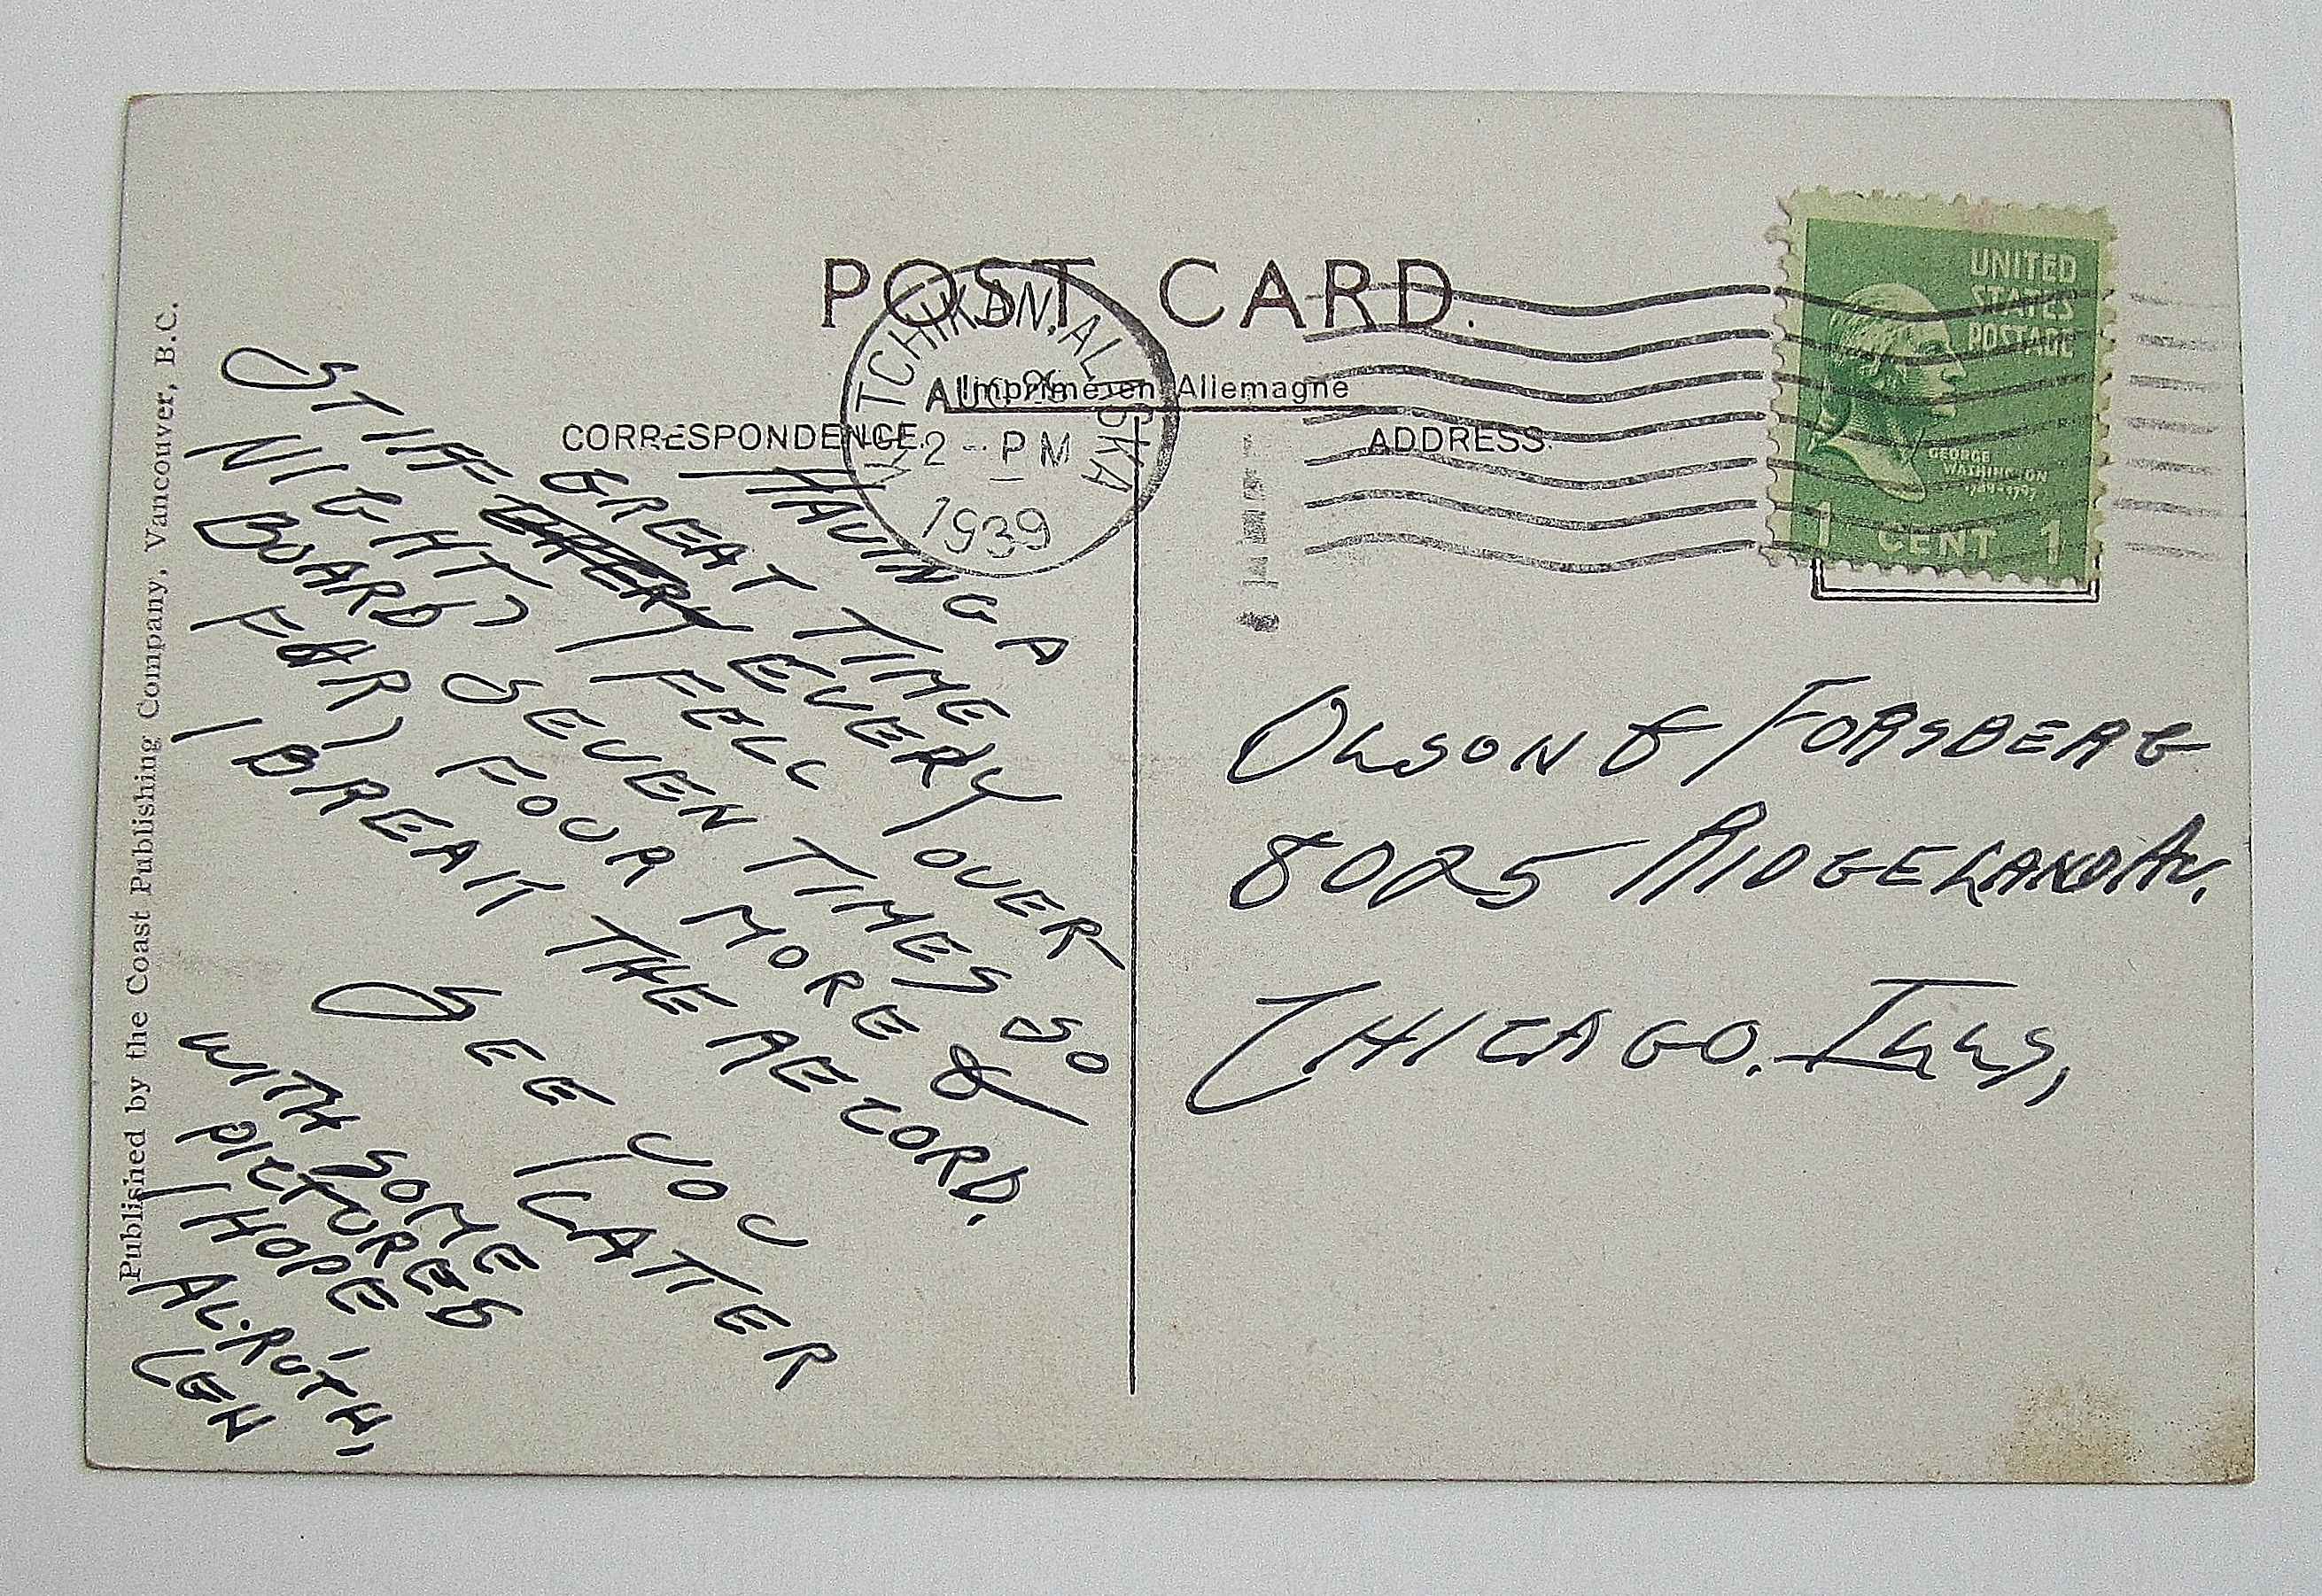 POST CARD.
Imprimé en Allemagne
CORRESPONDENCE.
ADDRESS.
KETCHIKAN, ALASKA
AUG
2 - PM
1939
UNITED
STATES
POSTAGE
GEORGE
WASHINGTON
1789-1797
1 CENT 1
HAVING A
GREAT TIME
STIFF EVERY
NIGHT, I FELL OVER
BOARD SEVEN TIMES SO
FAR, FOUR MORE &
I BREAK THE RECORD.
SEE YOU
LATTER
WITH SOME
PICTURES
I HOPE
AL. RUTH,
LEN
OLSON & FORSBERG
8025 RIDGELAND AV.
CHICAGO. ILLS,
Published by the Coast Publishing Company, Vancouver, B.C.